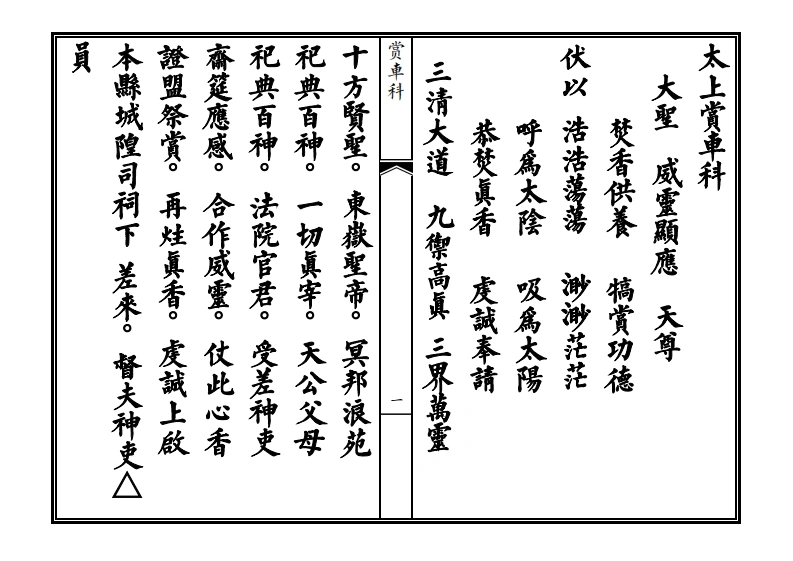 太上賞車科
大聖　威靈顯應　天尊
焚香供養　犒賞功德
伏以　浩浩蕩蕩　渺渺茫茫
呼為太陰　吸為太陽
恭焚眞香　虔誠奉請
三清大道　九禦高眞　三界萬靈
賞車科
一
十方賢聖。東嶽聖帝。冥邦浪苑
祀典百神。一切眞宰。天公父母
祀典百神。法院官君。受差神吏
齋筵應感。合作威靈。仗此心香
證盟祭賞。再炷眞香。虔誠上啟
本縣城隍司祠下　差來。督夫神吏△
員